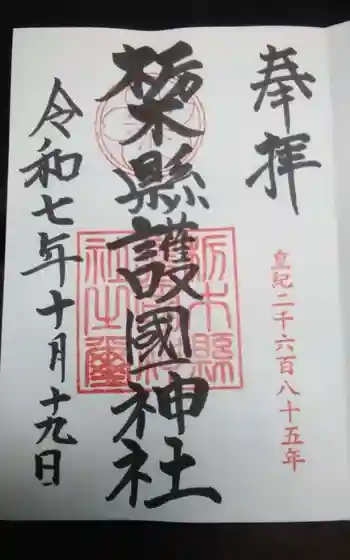 奉拝
皇紀二千六百八十五年
栃木縣護國神社
栃木縣護國神社之璽
令和七年十月十九日